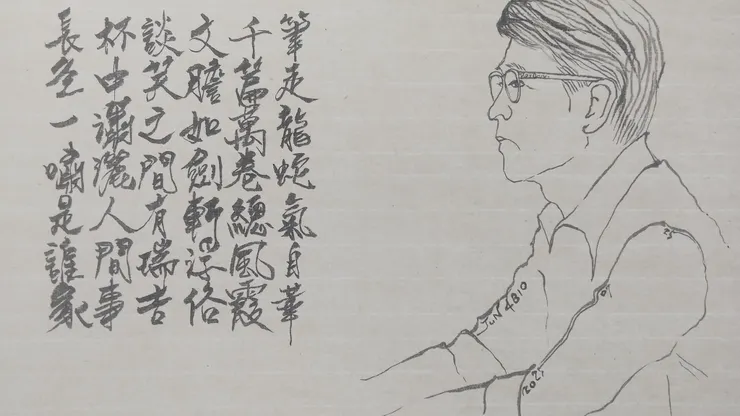 筆走龍蛇氣自華
千篇萬卷總風霞
文膽如劍斬俗
談笑之間有瑞
杯中瀟灑人間事
長空一嘯是誰家
JUN 4810
2021
07
25